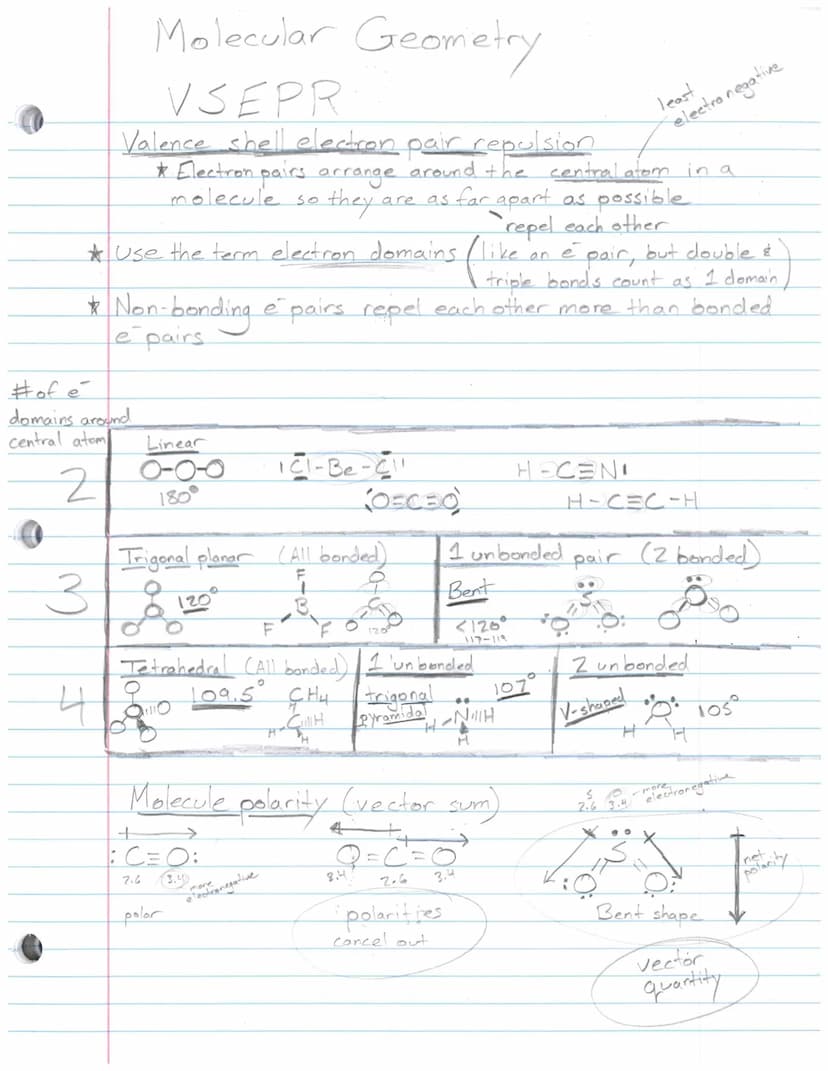 Molecular Geometry
VSEPR
least
electronegative
Valence shell electron pair repulsion
* Electron pairs arrange around the central atom in a
molecule so they are as far apart as possible
repel each other
* Use the term electron domains (like an e⁻ pair, but double &
triple bonds count as 1 domain)
* Non-bonding e⁻ pairs repel each other more than bonded
e⁻ pairs
# of e⁻
domains around
central atom
2
Linear
180°
Cl-Be-Cl
H-C≡N
O=C=O
H-C≡C-H
3
Trigonal planar (All bonded)
120°
F
B
F F
O
C
O O
120°
1 unbonded pair (2 bonded)
Bent
<120°
117-119
S
O O
4
Tetrahedral (All bonded)
109.5°
CH4
H
H-C H
H
1 unbonded
trigonal
pyramidal
107°
H-N H
H
2 unbonded
V-shaped
O
H H
105°
Molecule polarity (vector sum)
:C≡O:
2.6 3.4 more
electronegative
polar
O=C=O
3.4 2.6 3.4
polarities
cancel out
S O - more
electronegative
2.6 3.4
S
:O O:
Bent shape
net
polarity
vector
quantity